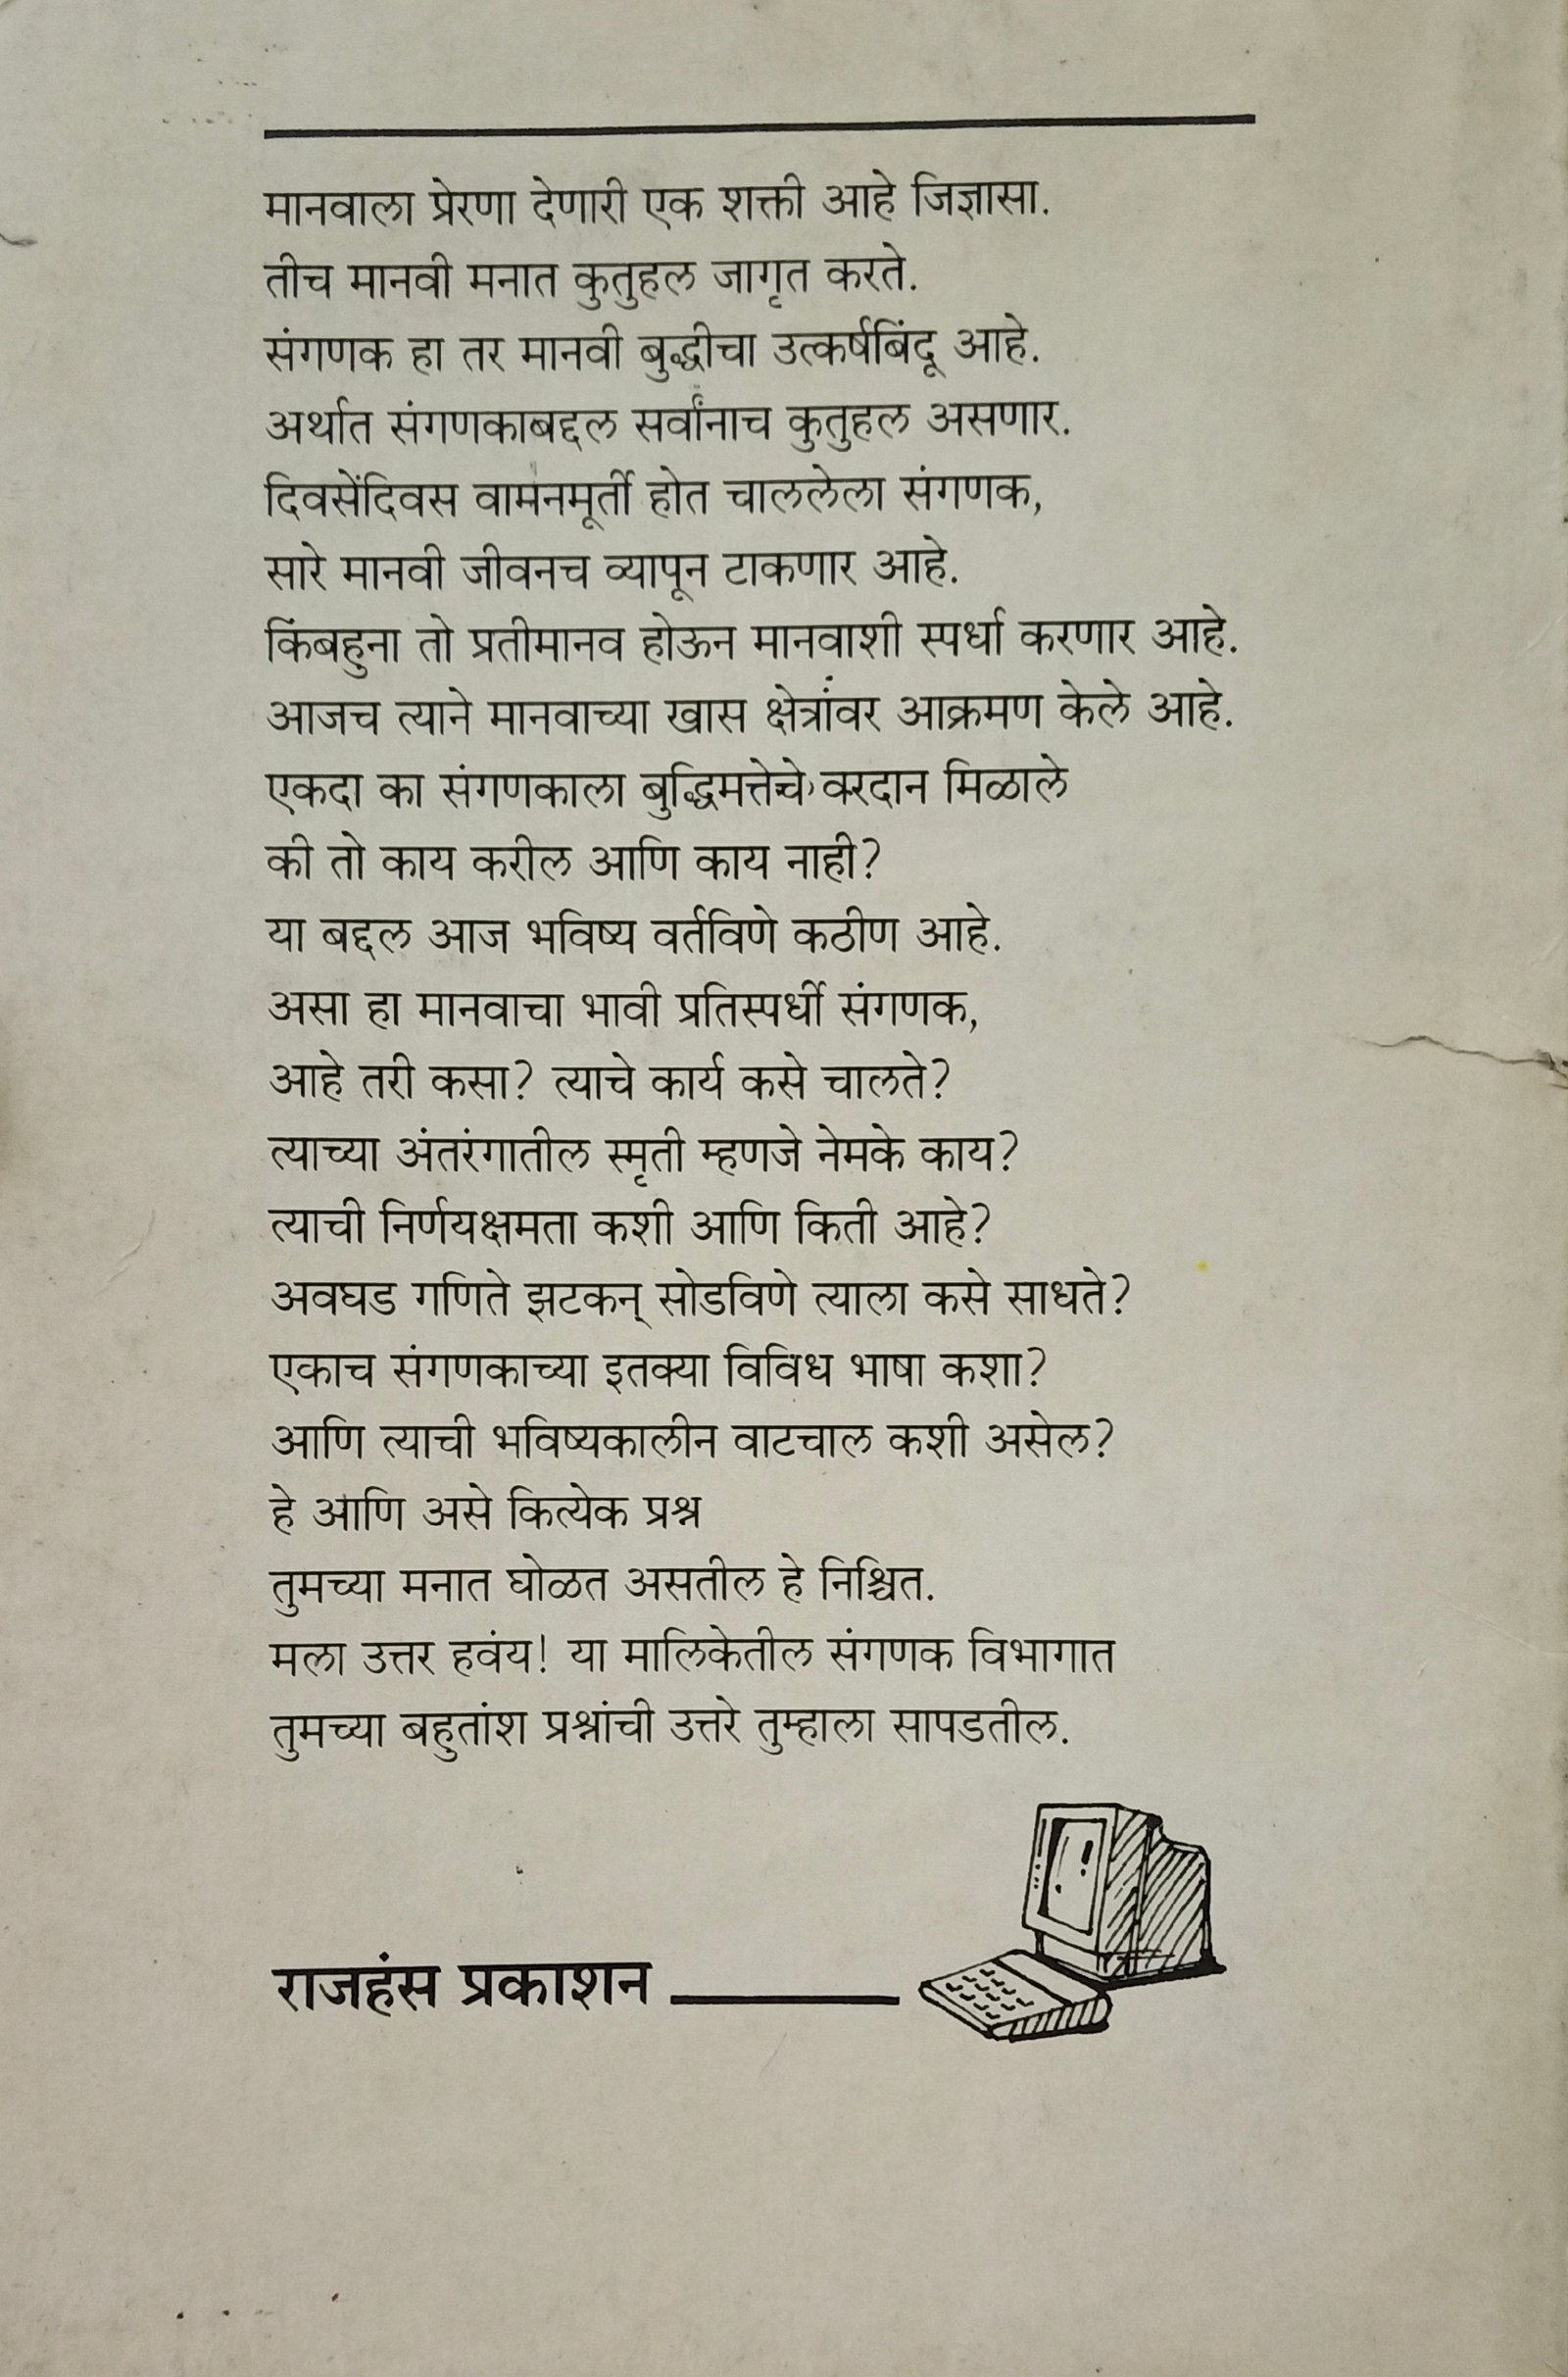 मानवाला प्रेरणा देणारी एक शक्ती आहे जिज्ञासा.
तीच मानवी मनात कुतुहल जागृत करते.
संगणक हा तर मानवी बुद्धीचा उत्कर्षबिंदू आहे.
अर्थात संगणकाबद्दल सर्वांनाच कुतुहल असणार.
दिवसेंदिवस वामनमूर्ती होत चाललेला संगणक,
सारे मानवी जीवनच व्यापून टाकणार आहे.
किंबहुना तो प्रतीमानव होऊन मानवाशी स्पर्धा करणार आहे.
आजच त्याने मानवाच्या खास क्षेत्रांवर आक्रमण केले आहे.
एकदा का संगणकाला बुद्धिमत्तेचे वरदान मिळाले
की तो काय करील आणि काय नाही?
या बद्दल आज भविष्य वर्तविणे कठीण आहे.
असा हा मानवाचा भावी प्रतिस्पर्धी संगणक,
आहे तरी कसा? त्याचे कार्य कसे चालते?
त्याच्या अंतरंगातील स्मृती म्हणजे नेमके काय?
त्याची निर्णयक्षमता कशी आणि किती आहे?
अवघड गणिते झटकन् सोडविणे त्याला कसे साधते?
एकाच संगणकाच्या इतक्या विविध भाषा कशा?
आणि त्याची भविष्यकालीन वाटचाल कशी असेल?
हे आणि असे कित्येक प्रश्न
तुमच्या मनात घोळत असतील हे निश्चित.
मला उत्तर हवंय! या मालिकेतील संगणक विभागात
तुमच्या बहुतांश प्रश्नांची उत्तरे तुम्हाला सापडतील.
राजहंस प्रकाशन